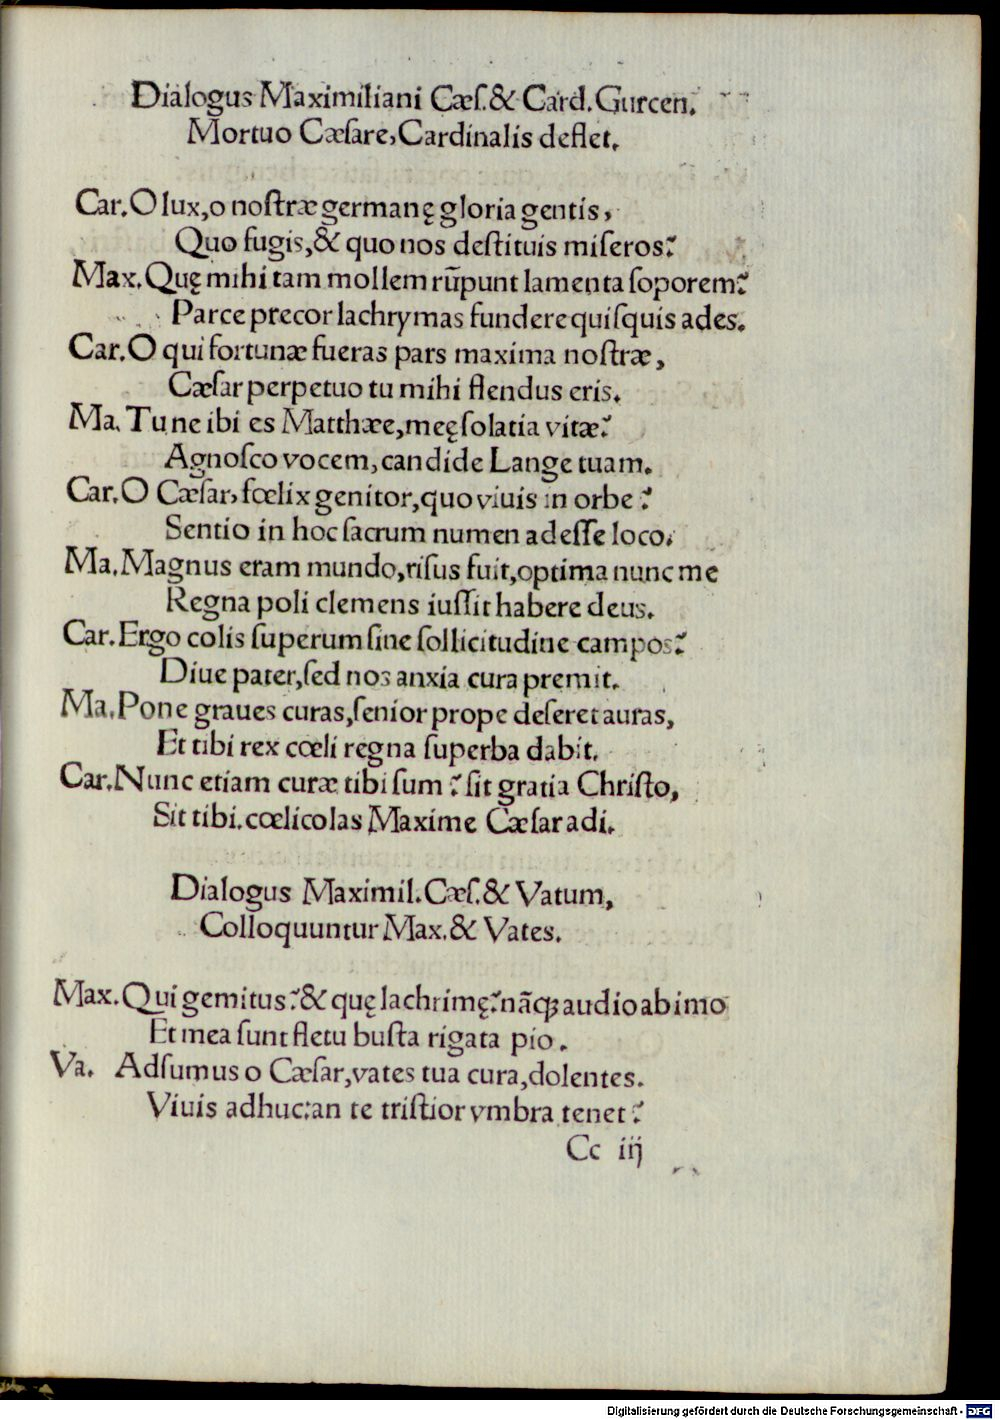 Dialogus Maximiliani Cæſ. & Card. Gurcen.
Mortuo Cæſare, Cardinalis deflet.
Car. O lux, o noſtræ germanę gloria gentis,
Quo fugis, & quo nos deſtituis miſeros?
Max. Quę mihi tam mollem rūpunt lamenta ſoporem?
Parce precor lachrymas fundere quiſquis ades.
Car. O qui fortunæ fueras pars maxima noſtræ,
Cæſar perpetuo tu mihi flendus eris.
Ma. Tu ne ibi es Matthæe, meę ſolatia vitæ?
Agnoſco vocem, candide Lange tuam.
Car. O Cæſar, fœlix genitor, quo viuis in orbe?
Sentio in hoc ſacrum numen adeſſe loco.
Ma. Magnus eram mundo, riſus fuit, optima nunc me
Regna poli clemens iuſſit habere deus.
Car. Ergo colis ſuperum ſine ſollicitudine campos?
Diue pater, ſed nos anxia cura premit.
Ma. Pone graues curas, ſenior prope deſeret auras,
Et tibi rex cœli regna ſuperba dabit.
Car. Nunc etiam curæ tibi ſum? ſit gratia Chriſto,
Sit tibi. cœlicolas Maxime Cæſar adi.
Dialogus Maximil. Cæſ. & Vatum,
Colloquuntur Max. & Vates.
Max. Qui gemitus? & quę lachrimę? nāꝗ audio ab imo
Et mea ſunt fletu buſta rigata pio.
Va. Adſumus o Cæſar, vates tua cura, dolentes.
Viuis adhuc: an te triſtior vmbra tenet?
Cc iij
Digitalisierung gefördert durch die Deutsche Forschungsgemeinschaft - DFG